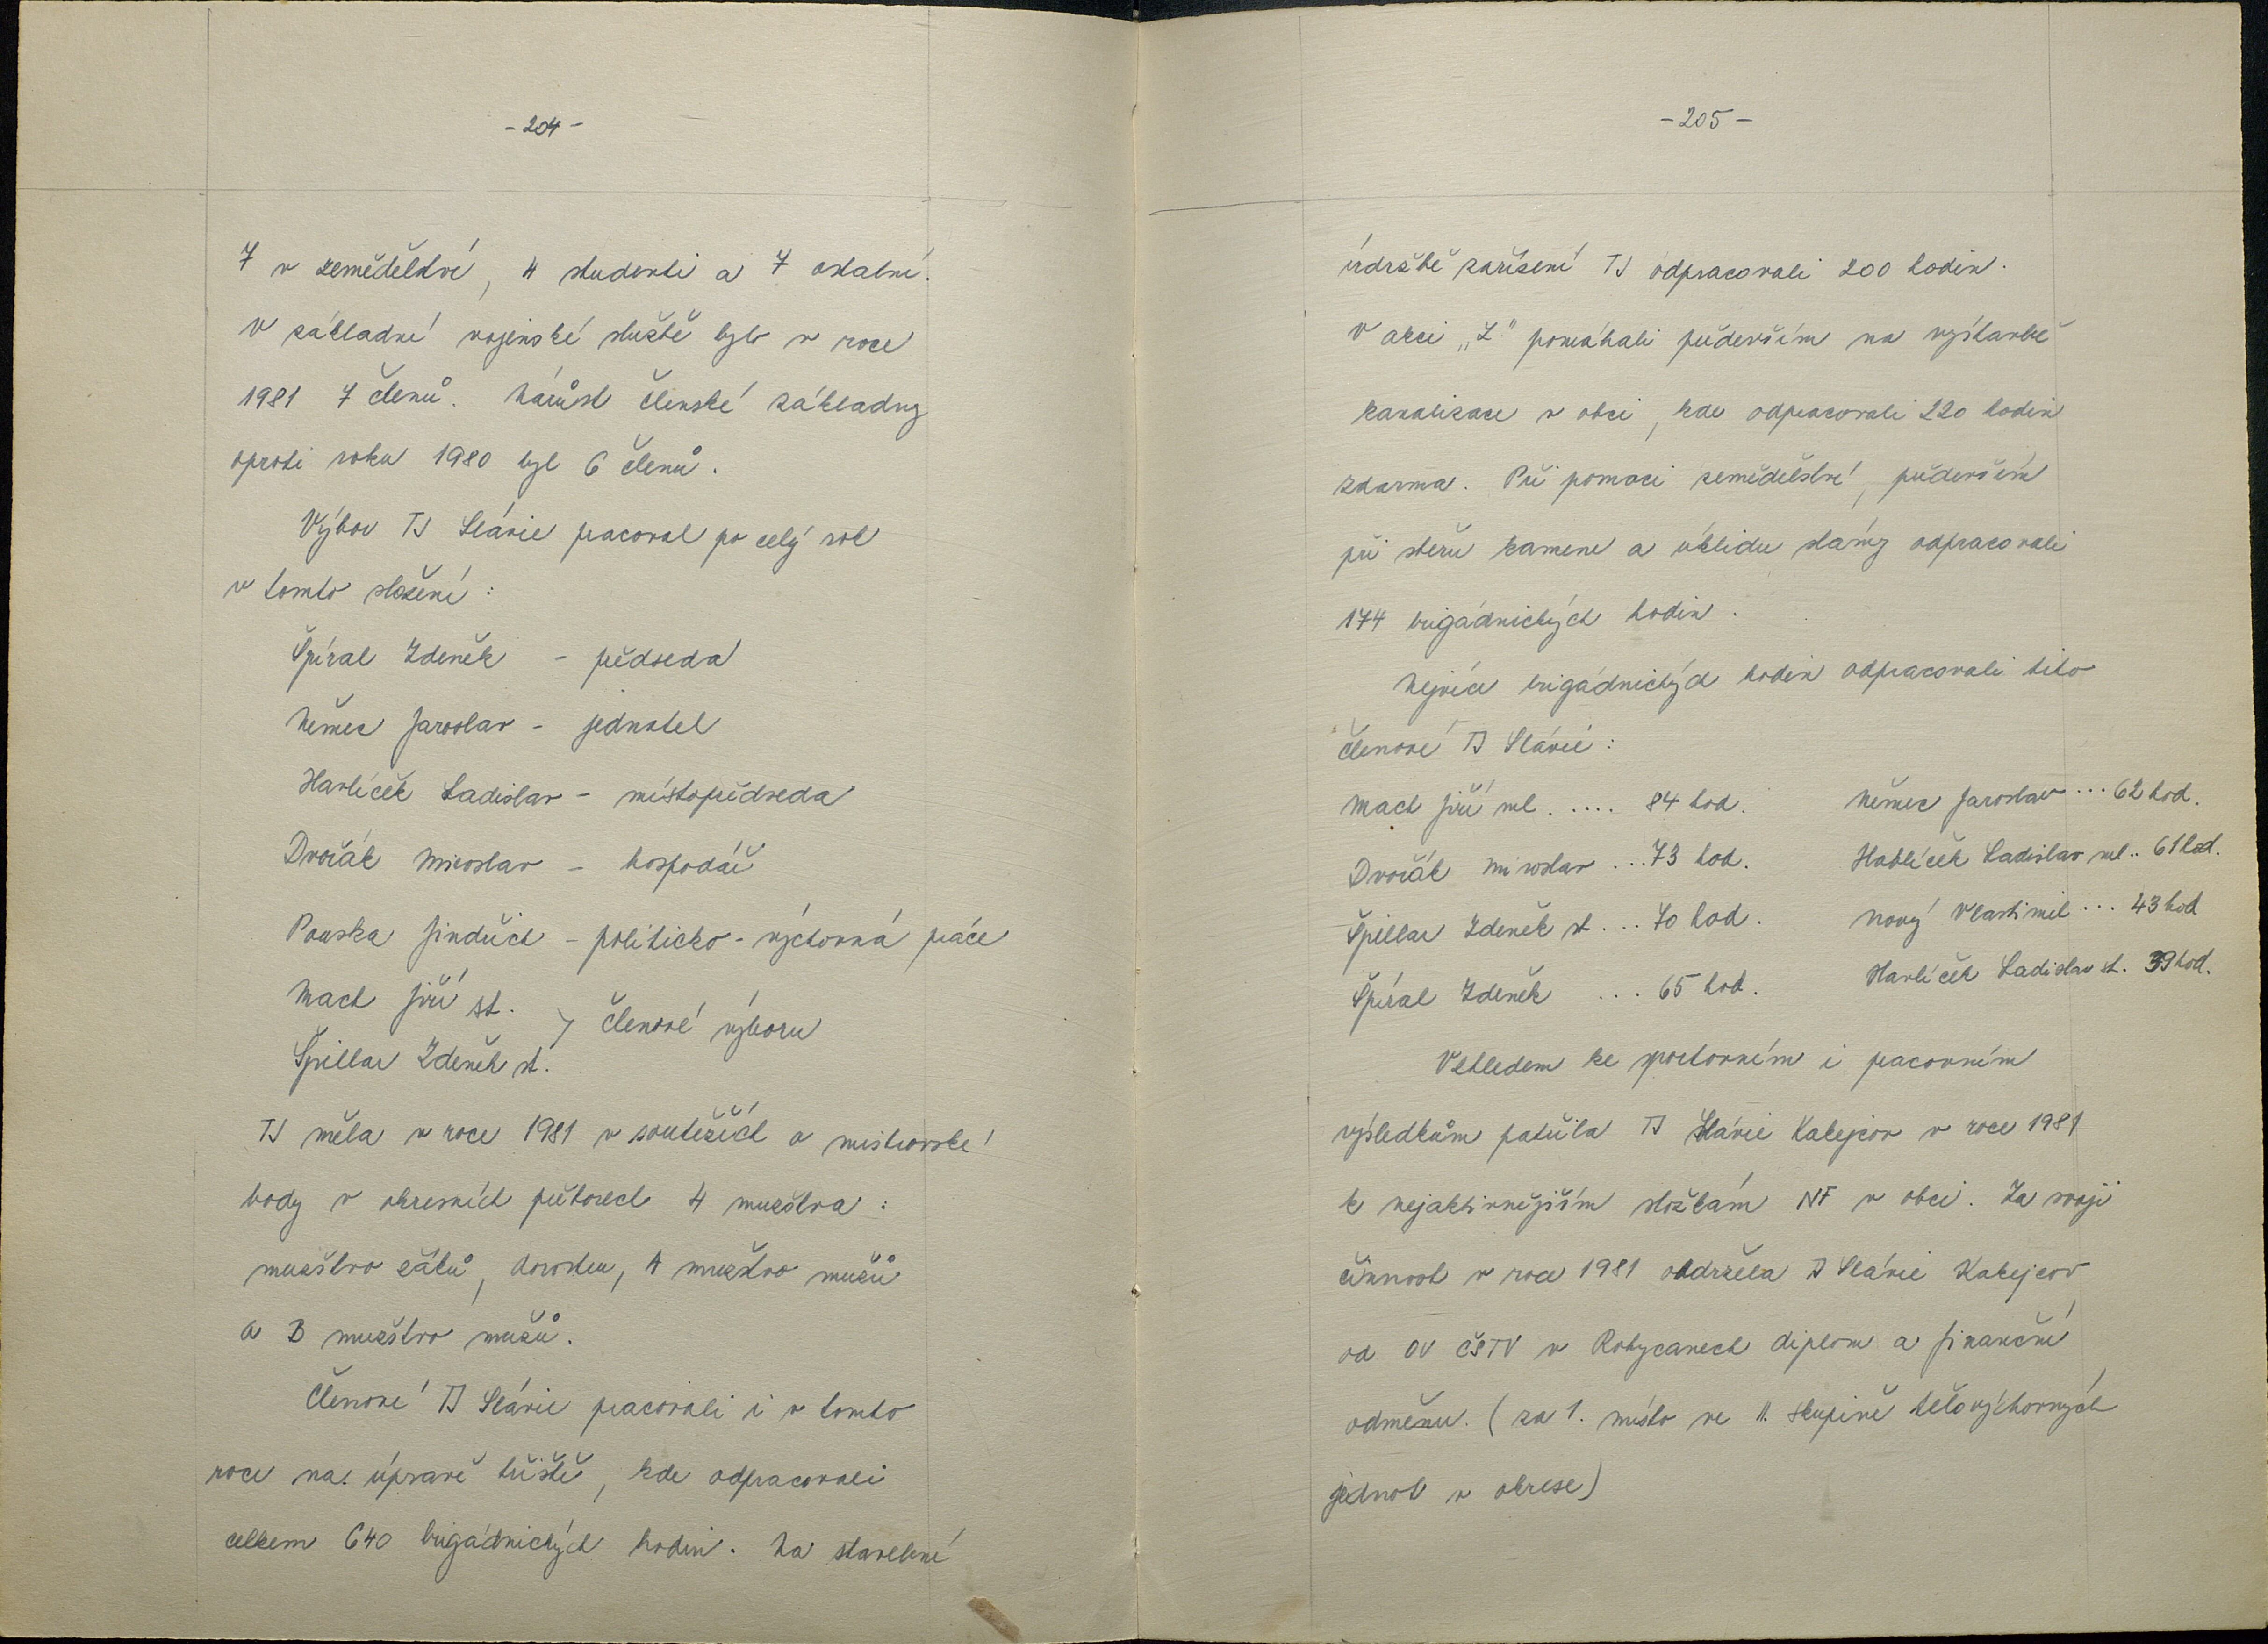 - 204 -
7 v zemědělství, 4 studenti a 7 ostatní.
V základní vojenské službě bylo v roce
1981 7 členů. Nárůst členské základny
oproti roku 1980 byl 6 členů.
Výbor TJ Slávie pracoval po celý rok
v tomto složení :
Špíral Zdeněk - předseda
Němec Jaroslav - jednatel
Havlíček Ladislav - místopředseda
Dvořák Miroslav - hospodář
Pouska Jindřich - politicko - výchovná práce
Mach Jiří st.
> členové výboru
Špillar Zdeněk st.
TJ měla v roce 1981 v soutěžích o mistrovské
body v okresních přeborech 4 mužstva :
mužstvo žáků, dorostu, A mužstvo mužů
a B mužstvo mužů.
Členové TJ Slávie pracovali i v tomto
roce na úpravě hřiště, kde odpracovali
celkem 640 brigádnických hodin. Na stavební
- 205 -
údržbě zařízení TJ odpracovali 200 hodin.
V akci „Z" pomáhali především na výstavbě
kanalizace v obci, kde odpracovali 220 hodin
zdarma. Při pomoci zemědělství, především
při sběru kamene a úklidu slámy odpracovali
174 brigádnických hodin.
Nejvíce brigádnických hodin odpracovali tito
členové TJ Slávie :
Mach Jiří ml. .... 84 hod. Němec Jaroslav ... 62 hod.
Dvořák Miroslav ... 73 hod. Havlíček Ladislav ml.. 61 hod.
Špillar Zdeněk st. ... 70 hod. Nový Vlastimil ... 43 hod
Špíral Zdeněk ... 65 hod. Havlíček Ladislav st. 39 hod.
Vzhledem ke sportovním i pracovním
výsledkům patřila TJ Slávie Kakejcov v roce 1981
k nejaktivnějším složkám NF v obci. Za svoji
činnost v roce 1981 obdržela TJ Slávie Kakejcov
od OV ČSTV v Rokycanech diplom a finanční
odměnu. (za 1. místo ve II. skupině tělovýchovných
jednot v okrese)